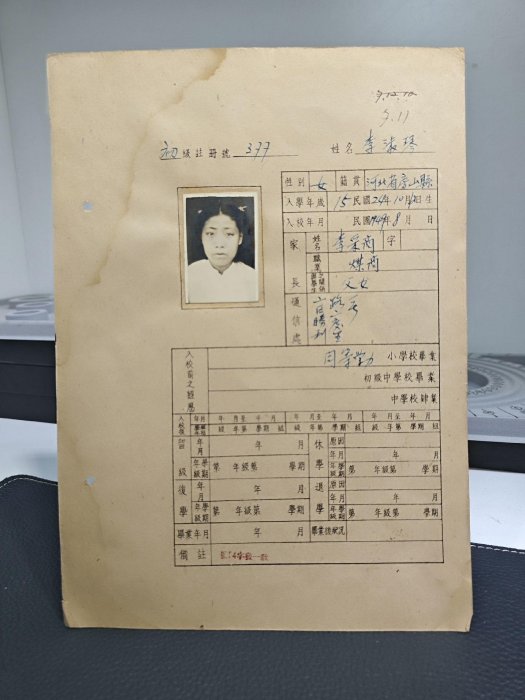 9.12.10
9.11
初級註冊號 377 姓名 李淑琴
性別 女 籍貫 河北省房山縣
入學年歲 15 民國24年10月 日生
入校年月 民國 年8月 日
家長 姓名 李宋商 字
職業 煤商
與學生之關係 父女
通信處
入校前之經歷 小學校畢業
初級中學校畢業
中學校肄業
入校後 年月 年 月至 年 月 年 月至 年 月 年 月至 年 月
級 年第 學期 組 級 年第 學期 組 級 年第 學期 組
年月 年 月 休學 原因
年月 年 月
級 年級學期 第 年級第 學期 年級學期 第 年級第 學期
復學 年月 年 月 退學 原因
年月 年 月
年級學期 第 年級第 學期 年級學期 第 年級第 學期
畢業年月 年 月 畢業後狀況
備註